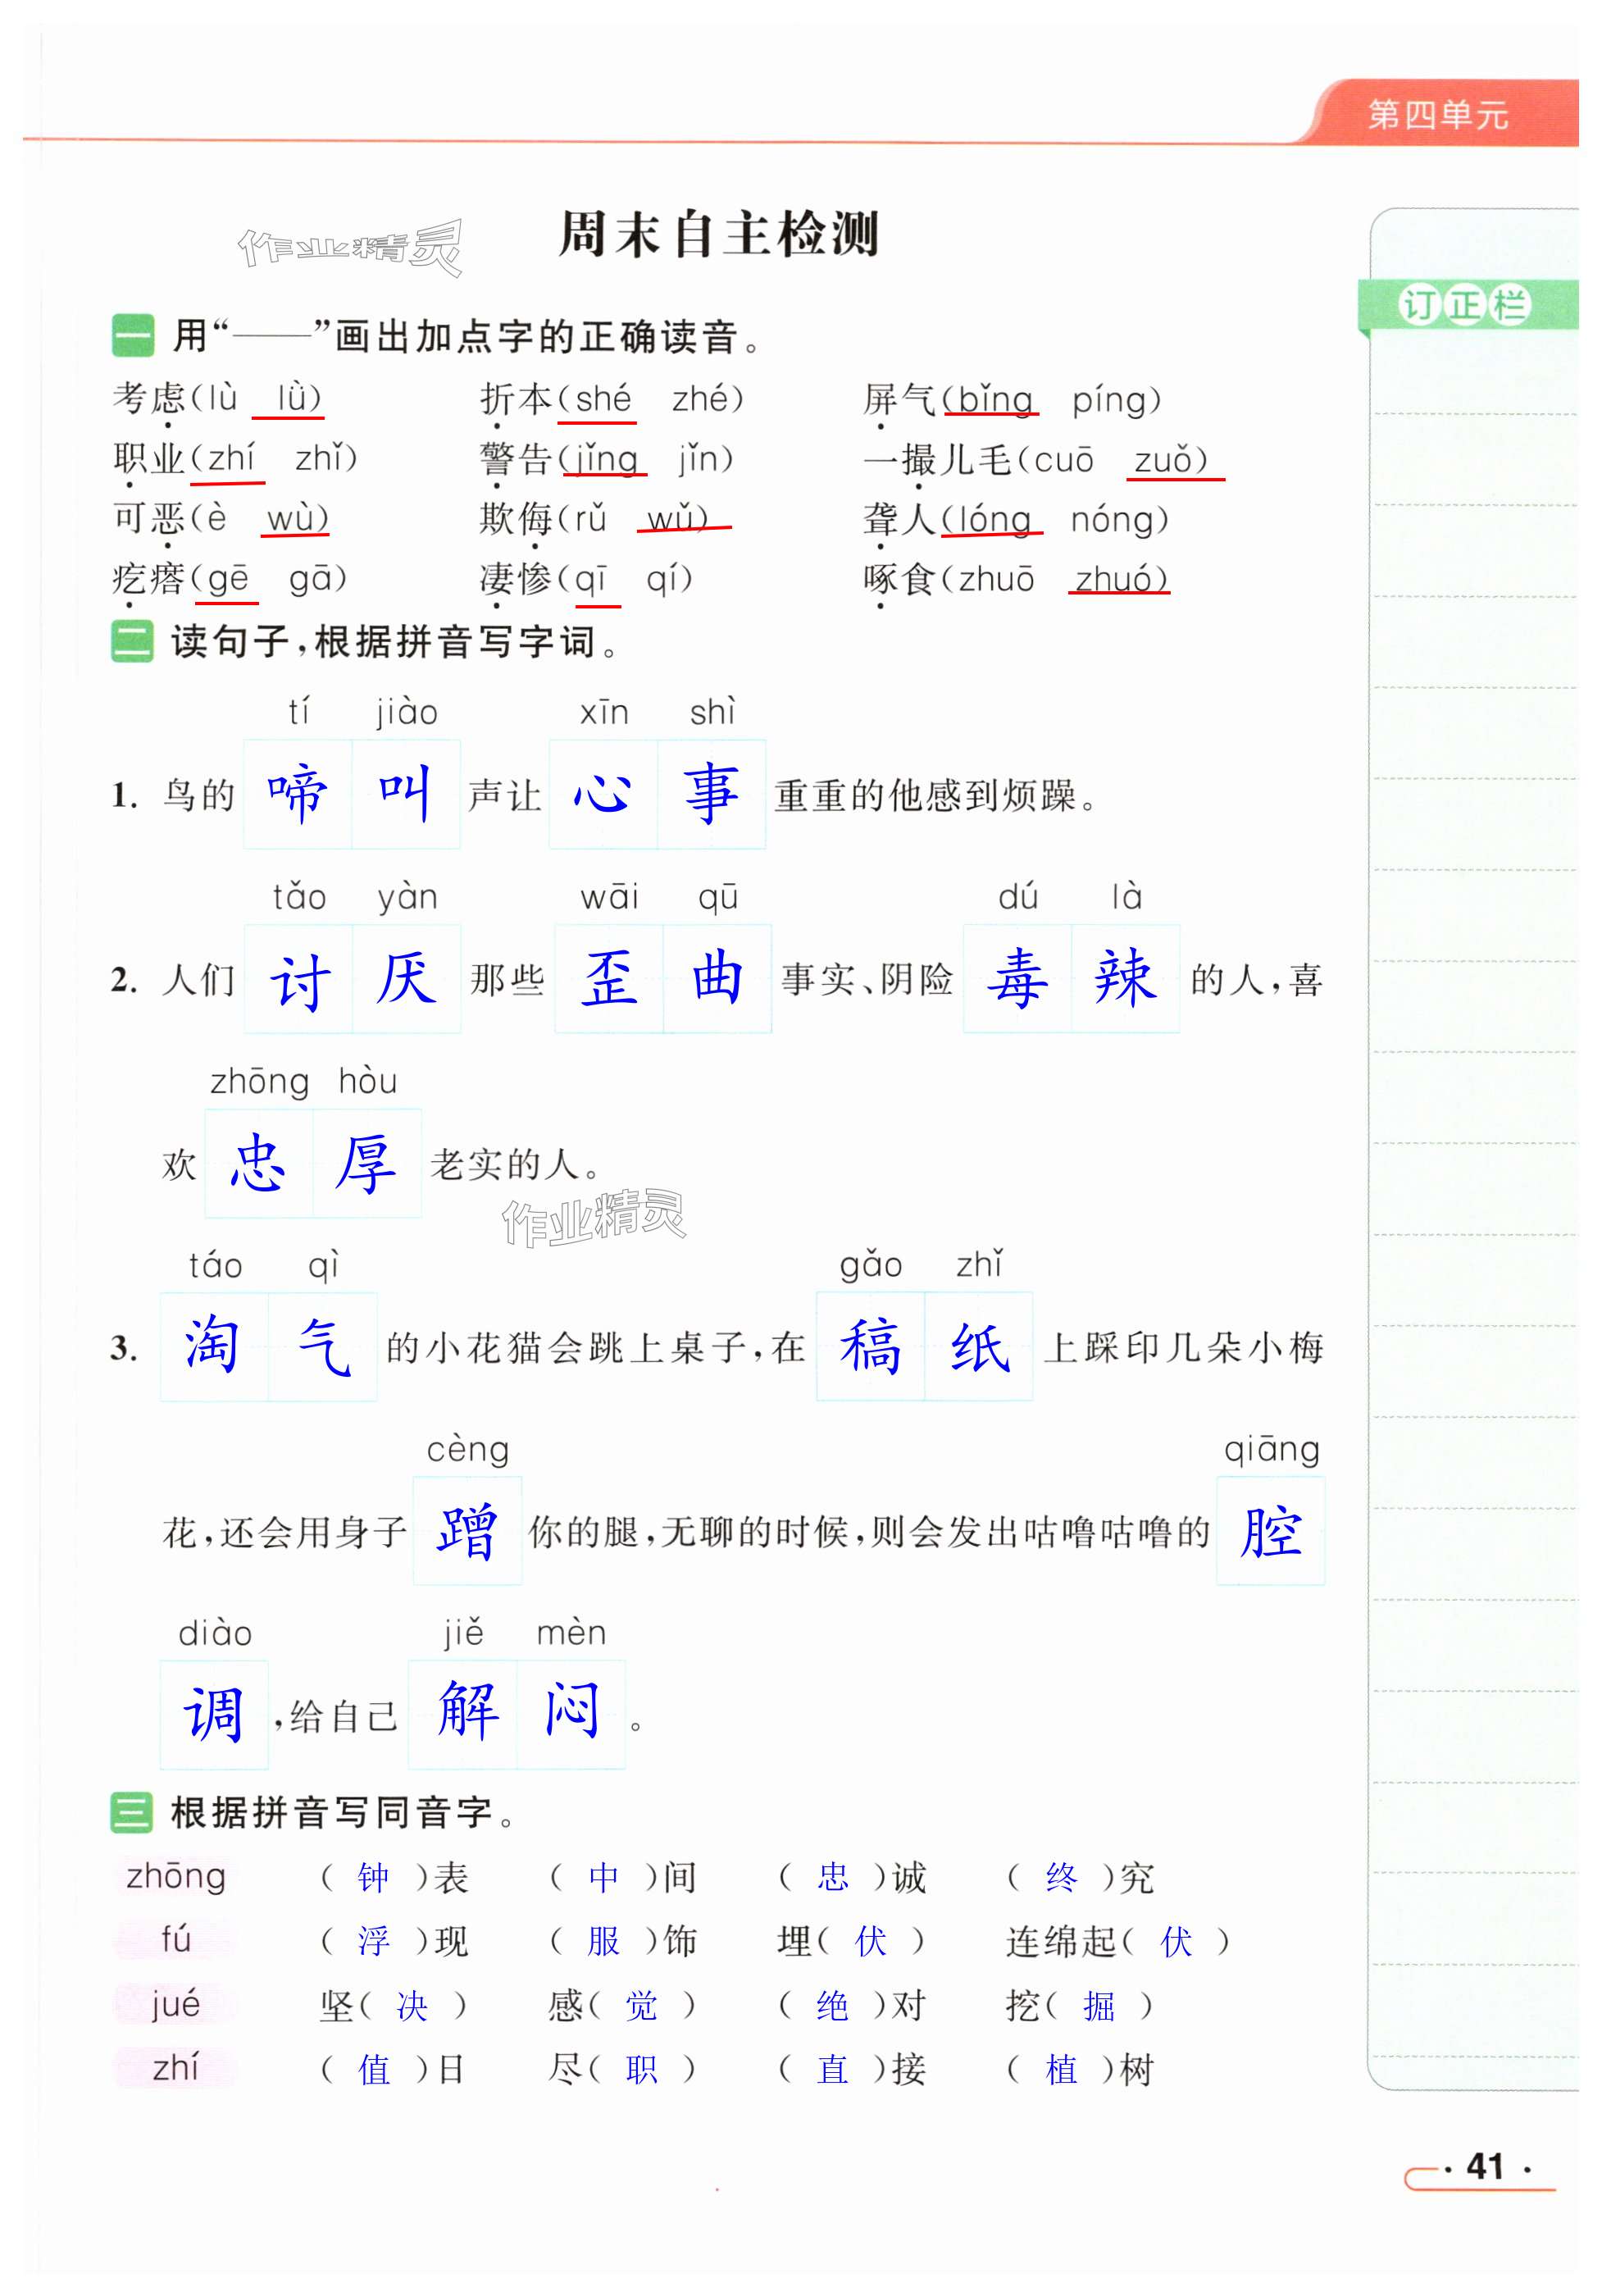 第四单元
作业精灵
周末自主检测
订正栏
一 用“——”画出加点字的正确读音。
考虑(lù lǜ) 折本(shé zhé) 屏气(bǐng píng)
职业(zhí zhǐ) 警告(jǐng jǐn) 一撮儿毛(cuō zuǒ)
可恶(è wù) 欺侮(rǔ wǔ) 聋人(lóng nóng)
疙瘩(gē gā) 凄惨(qī qí) 啄食(zhuō zhuó)
二 读句子,根据拼音写字词。
tí jiào xīn shì
1. 鸟的 啼叫 声让 心事 重重的他感到烦躁。
tǎo yàn wāi qū dú là
2. 人们 讨厌 那些 歪曲 事实、阴险 毒辣 的人,喜
zhōng hòu
欢 忠厚 老实的人。
作业精灵
táo qì gǎo zhǐ
3. 淘气 的小花猫会跳上桌子,在 稿纸 上踩印几朵小梅
cèng qiāng
花,还会用身子 蹭 你的腿,无聊的时候,则会发出咕噜咕噜的 腔
diào jiě mèn
调 ,给自己 解闷 。
三 根据拼音写同音字。
zhōng (钟)表 (中)间 (忠)诚 (终)究
fú (浮)现 (服)饰 埋(伏) 连绵起(伏)
jué 坚(决) 感(觉) (绝)对 挖(掘)
zhí (值)日 尽(职) (直)接 (植)树
· 41 ·